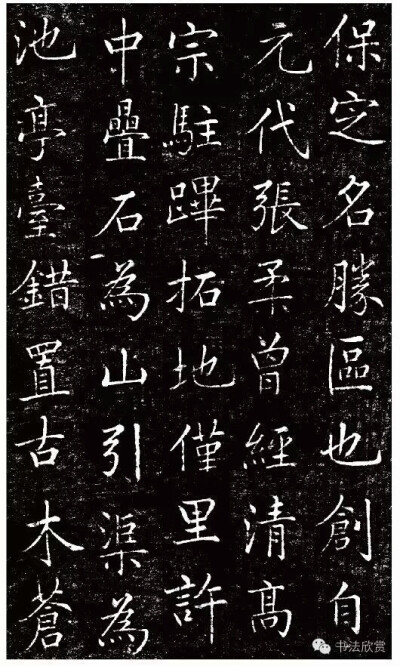 保定名勝區也創自
元代張柔曾經清高
宗駐蹕拓地僅里許
中疊石為山引渠為
池亭臺錯置古木蒼
书法欣赏